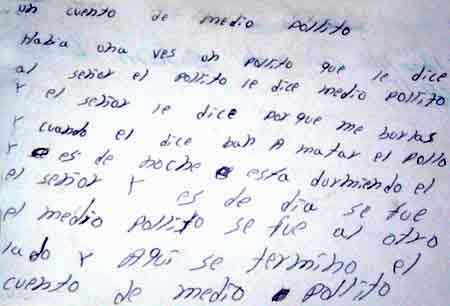 un cuento de medio pollito
Habia una ves un pollito que le dice
al señor el pollito le dice medio pollito
Y el señor le dice porque me burlas
Y cuando el dice ban A matar el pollo
Y es de noche esta durmiendo el
el señor Y es de dia se fue
el medio pollito se fue al otro
lado Y AQui se termino el
cuento de medio pollito